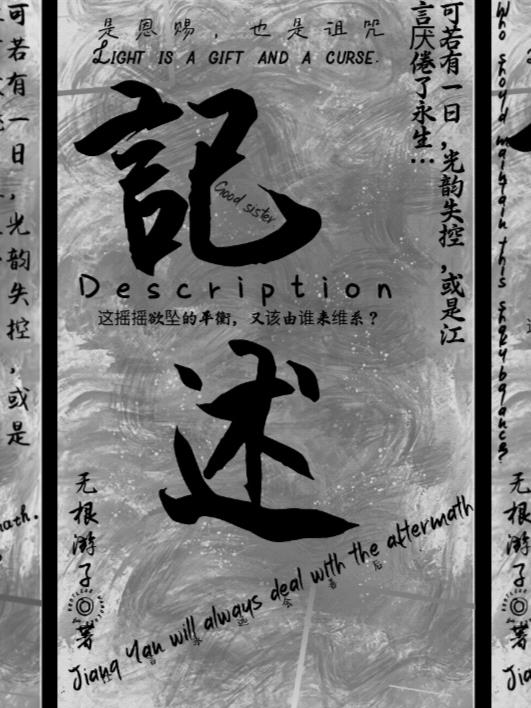 是恩赐，也是诅咒
LIGHT IS A GIFT AND A CURSE.
記
Good sister
Description
这摇摇欲坠的平衡，又该由谁来维系？
述
可若有一日，光韵失控，或是江
言厌倦了永生…
无根游子
著
Jiang Yan will always deal with the aftermath
江言永远会善后
可若有一日，光韵失控，或是
ath.
Who should maintain this shaky balance?
无根游子
著
Jia